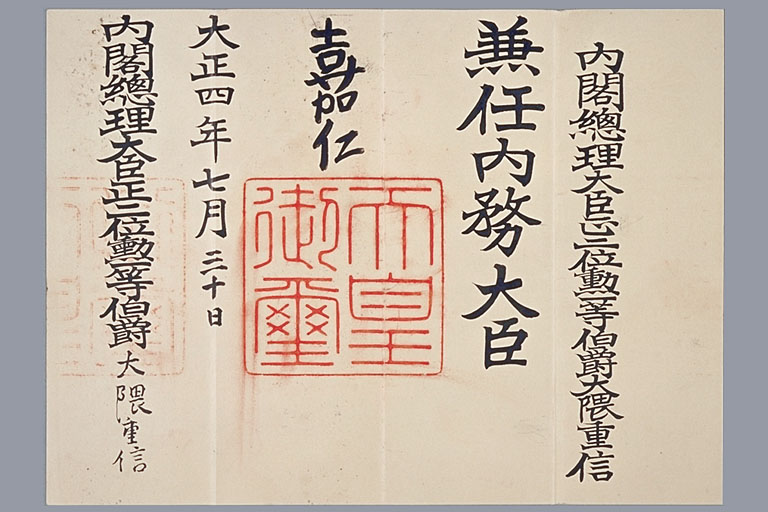 内閣總理大臣正二位勳一等伯爵大隈重信
兼任内務大臣
嘉仁
天皇
御璽
大正四年七月三十日
内閣總理大臣正二位勳一等伯爵大隈重信